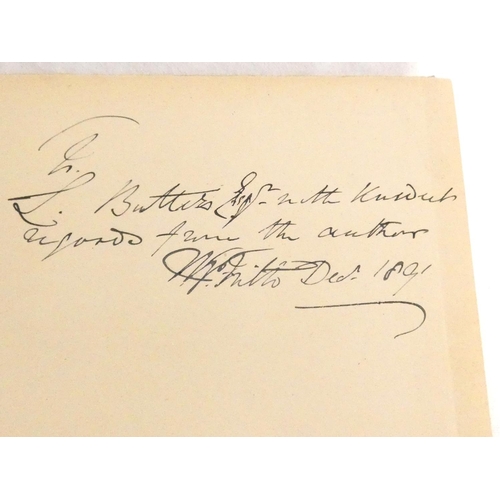 To.
L. Butters Esqr. with Kindest
regards from the author
Wm. Fitto Decr. 1891